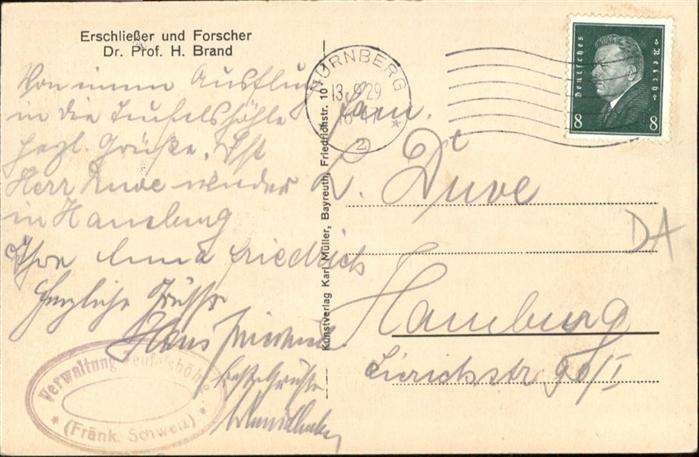 Erschließer und Forscher
Dr. Prof. H. Brand
Von einem Ausflug
in die Teufelshöhle
herzl. Grüße. Ist
Herr Duve wieder
in Hamburg
Ihre Anna Friedrich
Herzliche Grüsse
Hans
Verwaltung Teufelshöhle
* (Fränk. Schweiz) *
Kunstverlag Karl Müller, Bayreuth, Friedrichstr. 10
NÜRNBERG
13. 29
2
*
Deutsches Reich
8 8
Fam.
Duve
Hamburg
90/I
DA